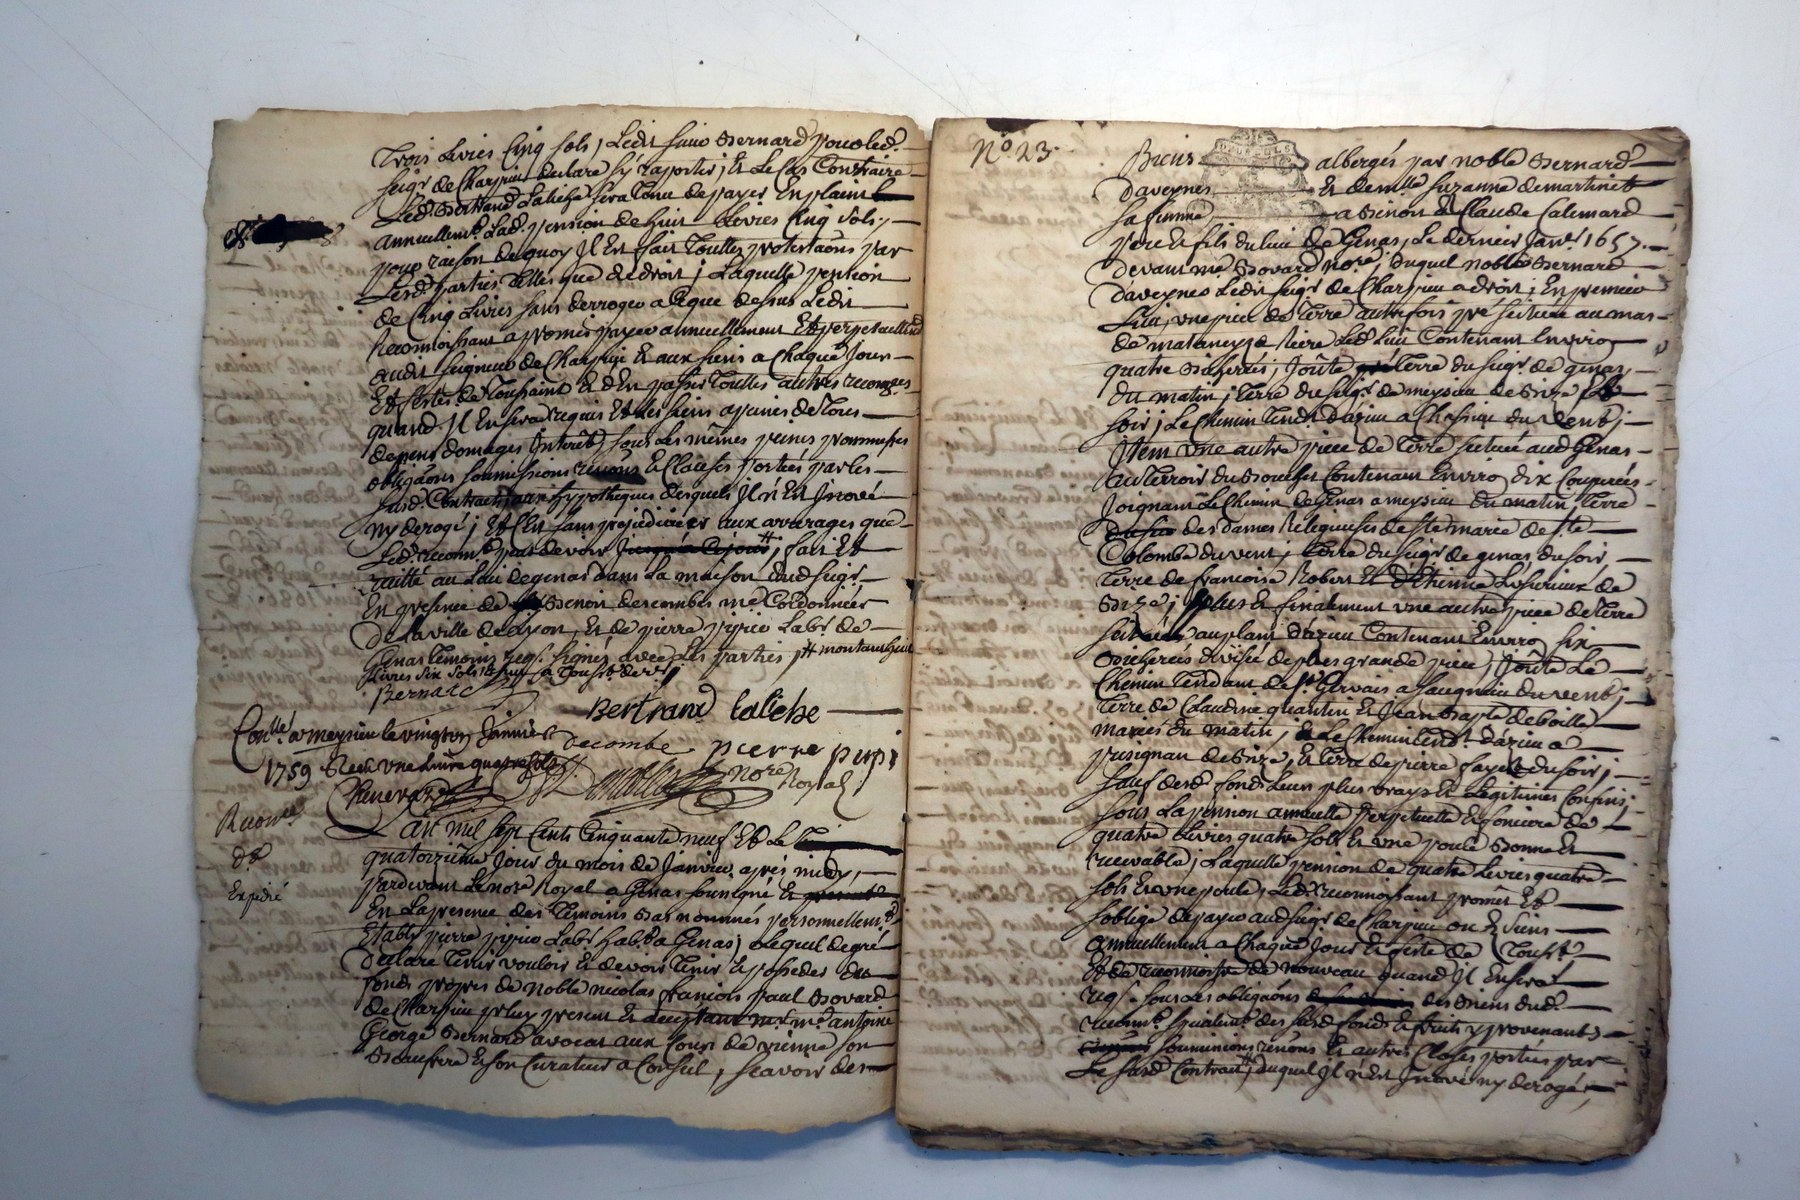 Trois Livres Cinq sols, Ledit sieur Bernard pour led.
seigr de Charpieu declare s'y raporter, et Le Cas Contraire
Led. Bertrand Labiche sera Tenu de payer En plain
annuellemt. Lad. pension de huit Livres Cinq Sols,
pour raison de quoy Il Est fait Touttes protestaôns par
Lesd. parties telles que de droit; Laquelle pension
de Cinq Livres sans derroger a Ce que dessus Ledit
Reconnoissant a promis payer annuellement Et perpetuellemt.
audit seigneur de Charpieu Et aux siens a Chaque Jour
Et feste de Toussaint Et d'En passer Touttes autres reconnces.
quand Il En sera requis Et les siens a peines de Tous
depens domages Interets, sous Les mêmes peines promesses
obligaôns soumissions renôns Et Clauses portées par les
susd. Contracts aux hypotheques desquels Il n'Est Inové
ny derogé; Et C'En sans prejudicier aux arrerages que
Led. reconnt. peut devoir, fait Et
passé au Lieu de genas dans La maison dudit seigr.
En presence de Benoit descombes me Cordonnier
De La ville de Lyon, Et de pierre pipier Labr. de
Genas Temoins reqs. signés avec Les parties
Bernard
Bertrand Labiche
Conllé a meyzieu le vingt janvier decombe pierre pipi
1759 Reçu une livre quatre sols nore Royal
Chenevaz
Reconce
de
Expedié
L'an mil sept Cents Cinquante neuf Et Le
quatorzième Jour du mois de Janvier après midy,
pardevant Le nore Royal a Genas soussigné Et
En La presence des Temoins Bas nommés personnellemt.
Etably pierre pipier Labr. habt. a Genas, Lequel de gré
Declare Tenir vouloir Et devoir Tenir Et posseder du
fonds propres de noble nicolas françois paul Bovard
de Charpieu present Et me. antoine
George Bernard avocat aux Cours de vienne son
Beaufrere Et son Curateur a Conseil, scavoir des
No 23
Biens albergés par noble Bernard
Daveynes Et demlle Suzanne demartinet
Sa femme, a Benoit Et Claude Calemard
pere Et fils du lieu de Genas, Le dernier Janvr. 1657.
Devant me Bovard nore, Duquel noble Bernard
Daveynes Ledit seigr. de Charpieu a droit, En premier
Lieu, une piece de Terre autrefois pré Située au mas
de malaneyze Riere Led. Lieu Contenant Environ
quatre Bicherées, Joûte Terre du seigr. de genas,
du matin, Terre du seigr. de meyzieu de Bize Et
soir, Le Chemin Tendt. D'azieu a Chassieu du vent;
Item une autre piece de Terre Située aud. Genas
Au Terroir du Bouchet Contenant Environ dix Couperées
Joignant Le Chemin de Genas a meyzieu du matin, Terre
des dames Religieuses de Ste marie de Ste
Colombe du vent, Terre du seigr. de genas du soir,
Terre de françoise Robert Et d'Etienne de
Bize; plus Et finalement une autre piece de Terre
Située au plans d'azieu Contenant Environ six
Bicherées divisée de plus grande piece, Joûte Le
Chemin Tendant de St Gervais a Jaugnieu du vent;
Terre de Claudine quantin Et Jean Bapte deboille
mariés du matin, Le Chemin Tendt. D'azieu a
pusignan de Bize, Et Terre de pierre fayet du soir;
sauf desd. fonds Leurs plus vrays Et Legitimes Confins,
sous La pension annuelle perpetuelle Et fonciere de
quatre Livres quatre sols Et une poule Bonne Et
recevable, Laquelle pension de quatre Livres quatre
sols Et une poule, Led. reconnoissant promet Et
s'oblige de payer aud. seigr. de Charpieu ou Es Siens
annuellement a Chaque Jour Et feste de Toussts
Et de reconnoistre de nouveau quand Il En sera
reqs. sous Les obligaôns des Biens dud.
reconnt. specialemt. des susd. fonds Et fruits y provenants
soumissions renôns Et autres Clauses portées par
Le susd. Contrait, duquel Il n'Est Inové ny derogé,